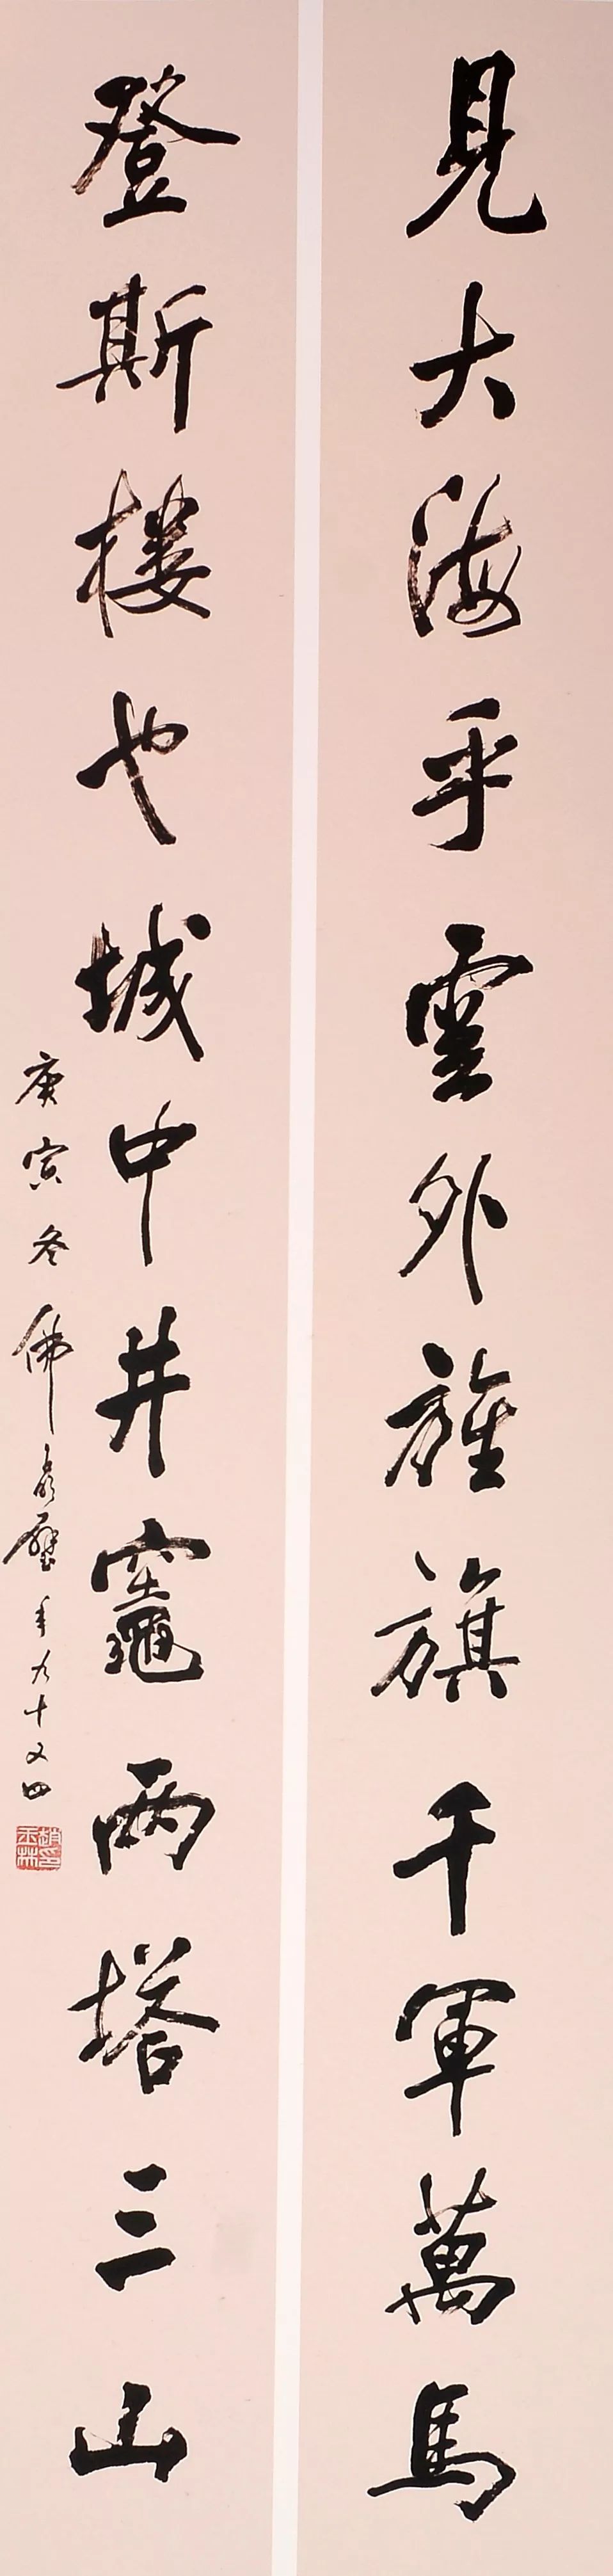 見大海乎雲外旌旗千軍萬馬
登斯樓也城中井竈兩塔三山
庚寅冬佛年九十又四
趙印玉林